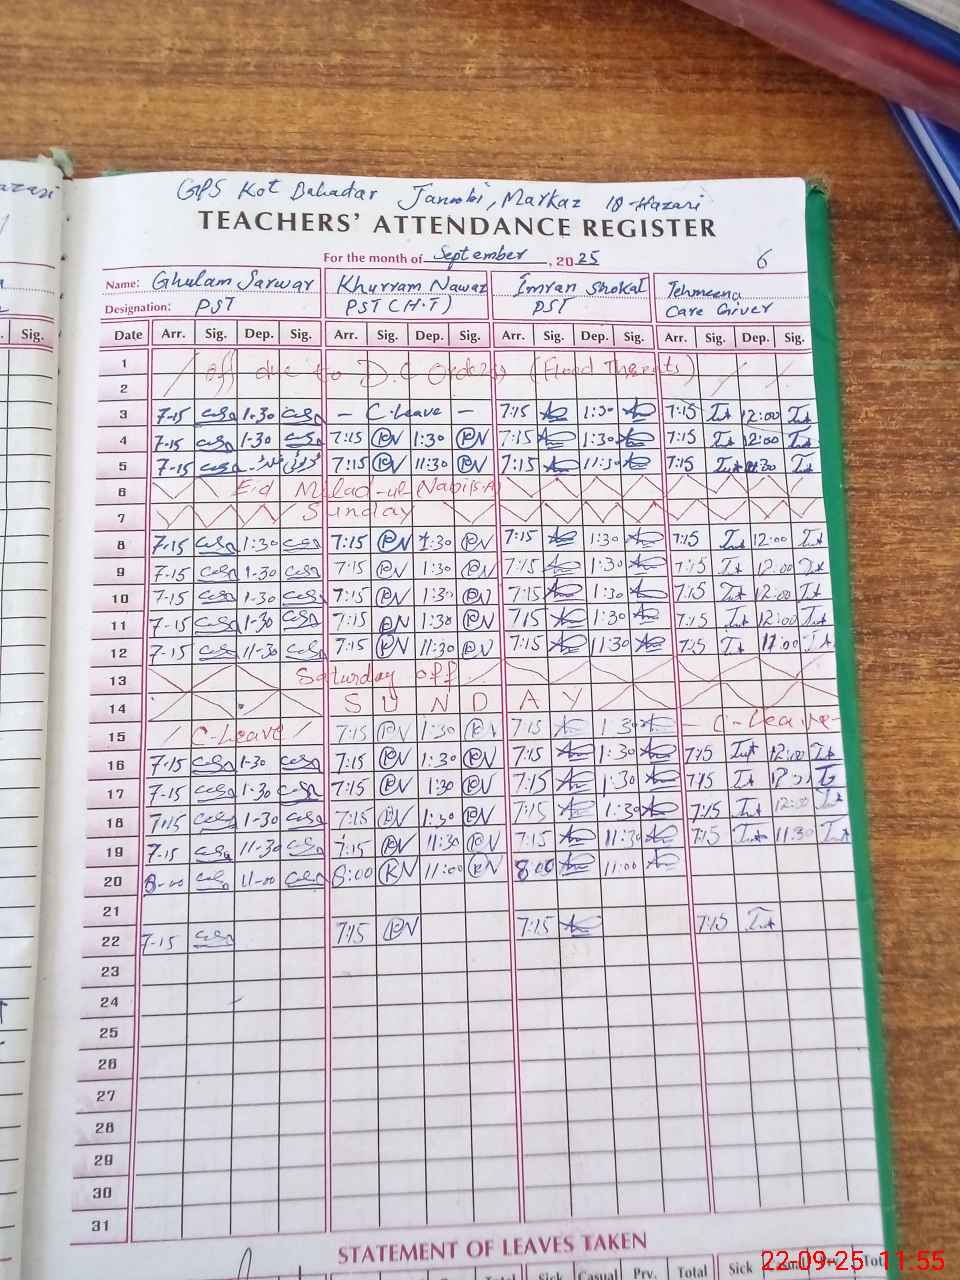 GPS Kot Bahadar Janoobi, Markaz 18-Hazari
TEACHERS' ATTENDANCE REGISTER
For the month of September, 2025 6
Name: Ghulam Sarwar Khurram Nawaz Imran Shokat Tehmeena
Designation: PST PST (H.T) PST Care Giver
Sig. Date Arr. Sig. Dep. Sig. Arr. Sig. Dep. Sig. Arr. Sig. Dep. Sig. Arr. Sig. Dep. Sig.
1 off due to D.C Orders (Flood Threats)
2
3 7-15 1-30 - C.Leave - 7:15 1:30 7:15 12:00
4 7-15 1-30 7:15 RN 1:30 RN 7:15 1:30 7:15 12:00
5 7-15 7:15 RN 11:30 RN 7:15 11:30 7:15
6 Eid Milad-ul Nabi(S.A)
7 Sunday
8 7-15 1:30 7:15 RN 1:30 RN 7:15 1:30 7:15 12:00
9 7-15 1-30 7:15 RN 1:30 RN 7:15 1:30 7:15 12:00
10 7-15 1-30 7:15 RN 1:30 RN 7:15 1:30 7:15 12:00
11 7-15 1-30 7:15 RN 1:30 RN 7:15 1:30 7:15 12:00
12 7-15 11-30 7:15 RN 11:30 RN 7:15 11:30 7:15 11:00
13 Saturday off
14 S U N D A Y
15 C-Leave 7:15 RN 1:30 RN 7:15 1:30 - C-Leave -
16 7-15 1-30 7:15 RN 1:30 RN 7:15 1:30 7:15 12:00
17 7-15 1-30 7:15 RN 1:30 RN 7:15 1:30 7:15
18 7:15 1-30 7:15 RN 1:30 RN 7:15 1:30 7:15
19 7-15 11-30 7:15 RN 11:30 RN 7:15 11:30 7:15 11:30
20 8-00 11-00 8:00 RN 11:00 RN 8:00 11:00
21
22 7-15 7:15 RN 7:15 7:15
23
24
25
26
27
28
29
30
31
STATEMENT OF LEAVES TAKEN
Total Sick Casual Prv. Total Sick Total
22-09-25 11:55